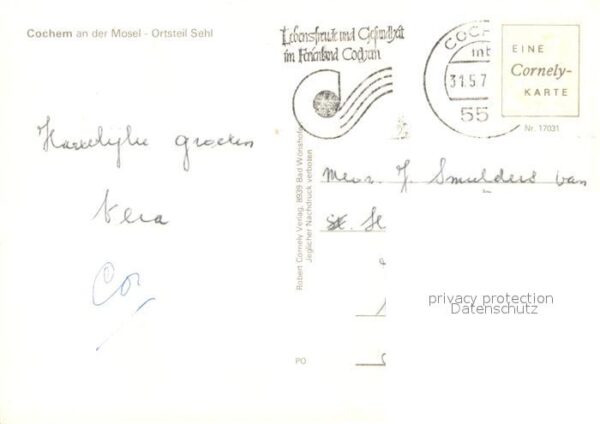 Cochem an der Mosel - Ortsteil Sehl
Lebensfreude und Gesundheit
im Ferienland Cochem
COCH
int
31.5.7
55
EINE
Cornely-
KARTE
Nr. 17031
Hartelijke groeten
Vera
Cor
Robert Cornely Verlag, 8939 Bad Wörishofen
Jeglicher Nachdruck verboten
Mevr. J. Smulders van
St. H
privacy protection
Datenschutz
PO